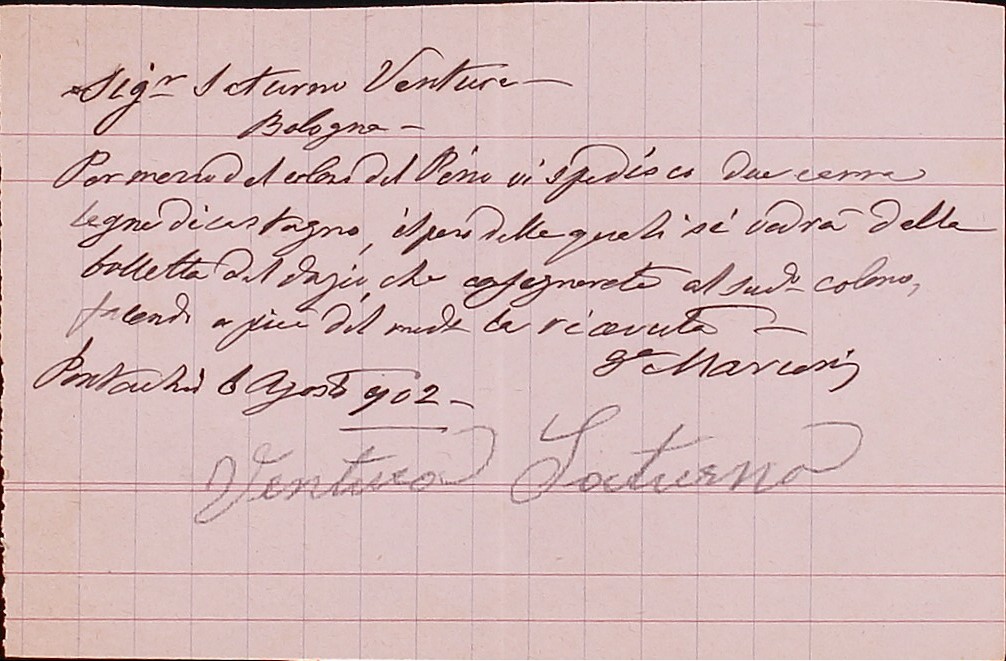 Sigr Saturno Ventura —
Bologna —
Per mezzo del colono del Pino vi spedisco due carra
legne di castagno, il peso delle quali si vedrà dalla
bolletta del dazio, che consegnerete al sudo colono,
facendo a piè del mede la ricevuta —
Gce Marconi
Pontecchio 6 Agosto 902 —
Ventura Saturno